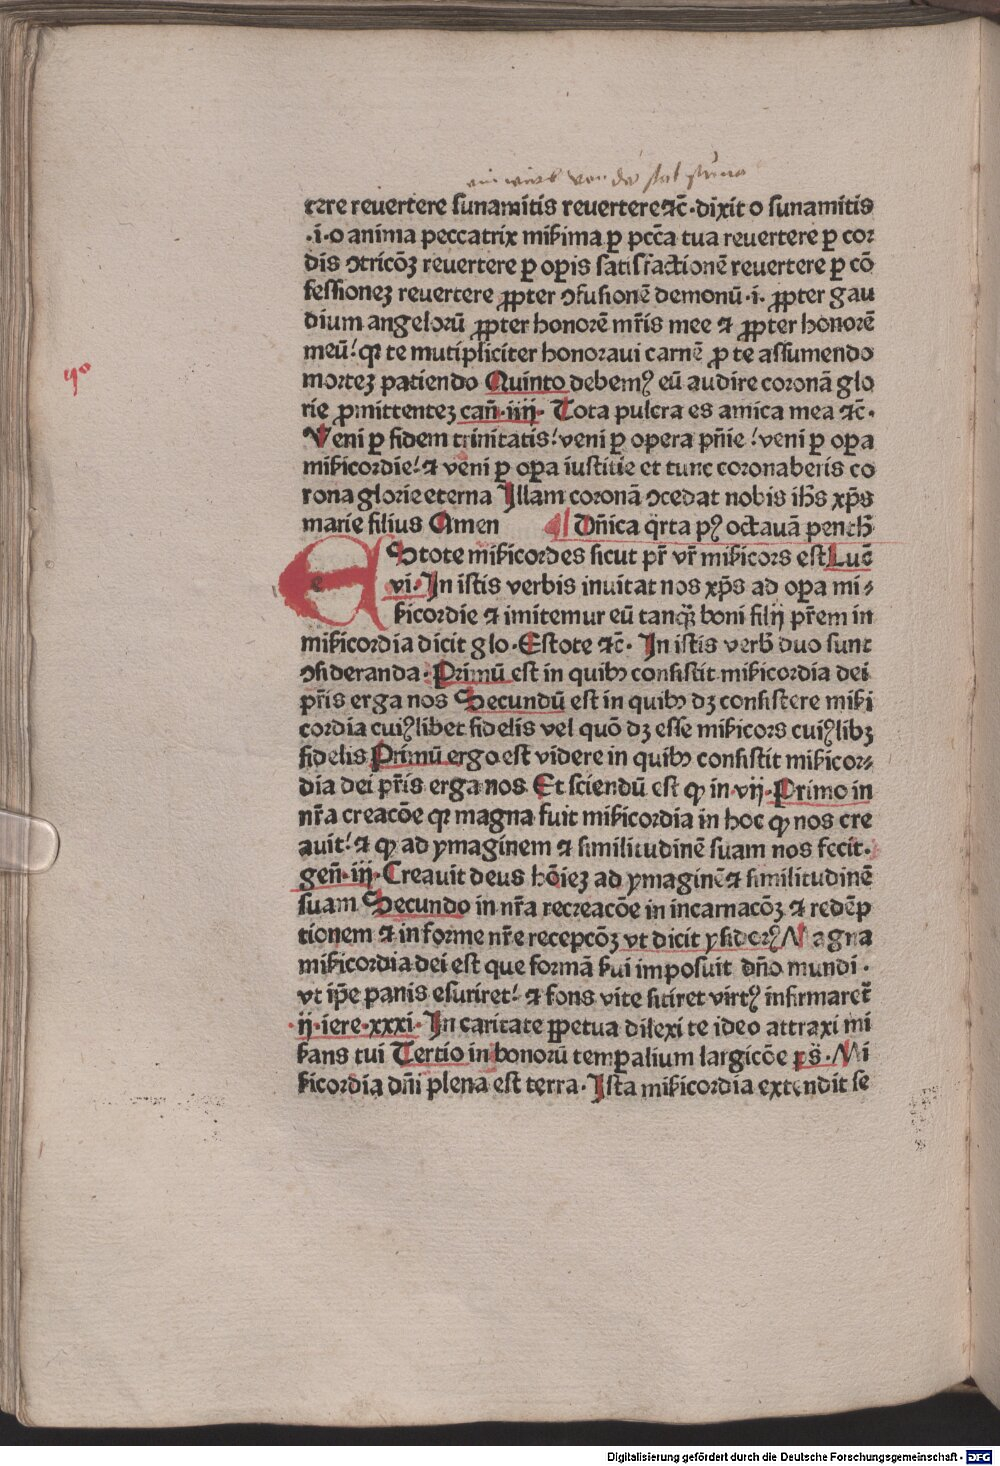 tere reuertere sunamitis reuertere ⁊c̄·dixit o sunamitis
·i·o anima peccatrix miẜima ꝑ pcc̄a tua reuertere ꝑ cor
dis ↄtricōꝫ reuertere ꝑ oꝑis satisfactionē reuertere ꝑ cō
fessioneꝫ reuertere ꝓpter ↄfusionē demonū·i· ꝓpter gau
dium angelorū ꝓpter honorē mr̄is mee ⁊ ꝓpter honorē
meū! qꝛ te mutipliciter honoraui carnē ꝓ te assumendo
morteꝫ patiendo Quinto debemꝰ eū audire coronā glo
rie ꝓmittenteꝫ can̄·iiij· Tota pulcra es amica mea ⁊c̄·
Veni ꝑ fidem trinitatis! veni ꝑ opera pn̄ie! veni ꝑ oꝑa
miẜicordie! ⁊ veni ꝑ oꝑa iustitie et tunc coronaberis co
rona glorie eterna Illam coronā ↄcedat nobis ih̄s xp̄s
marie filius Amen Dn̄ica q̄rta pꝰ octauā pentch̄
EStote miẜicordes sicut pr̄ vr̄ miẜicors est Luc̄
vi· In istis verbis inuitat nos xp̄s ad oꝑa mi⸗
ẜicordie ⁊ imitemur eū tanqꝫ boni filij pr̄em in
miẜicordia dicit glo·Estote ⁊c̄· In istis verb̄ duo sunt
ↄsideranda·Primū est in quibꝰ consistit miẜicordia dei
pr̄is erga nos Secundū est in quibꝰ dꝫ consistere miẜi
cordia cuiꝰlibet fidelis vel quō dꝫ esse miẜicors cuiꝰlibꝫ
fidelis Primū ergo est videre in quibꝰ consistit miẜicor⸗
dia dei pr̄is erga nos Et sciendū est ꝙ in vij·Primo in
nr̄a creacōe qꝛ magna fuit miẜicordia in hoc ꝙ nos cre
auit! ⁊ ꝙ ad ymaginem ⁊ similitudinē suam nos fecit·
gen̄·iij·Creauit deus hōieꝫ ad ymaginē ⁊ similitudinē
suam Secundo in nr̄a recreacōe in incarnacōꝫ ⁊ redēp
tionem ⁊ in forme nr̄e recepcōꝫ vt dicit ysiderꝰ Magna
miẜicordia dei est que formā ẜui imposuit dn̄o mundi·
vt ip̄e panis esuriret! ⁊ fons vite sitiret virtꝰ infirmaret̄
ij·iere·xxxi·In caritate ꝑpetua dilexi te ideo attraxi mi
ẜans tui Tertio in bonorū temꝑalium largicōe ps̄·Mi
ẜicordia dn̄i plena est terra·Ista miẜicordia extendit se
Digitalisierung gefördert durch die Deutsche Forschungsgemeinschaft - DFG